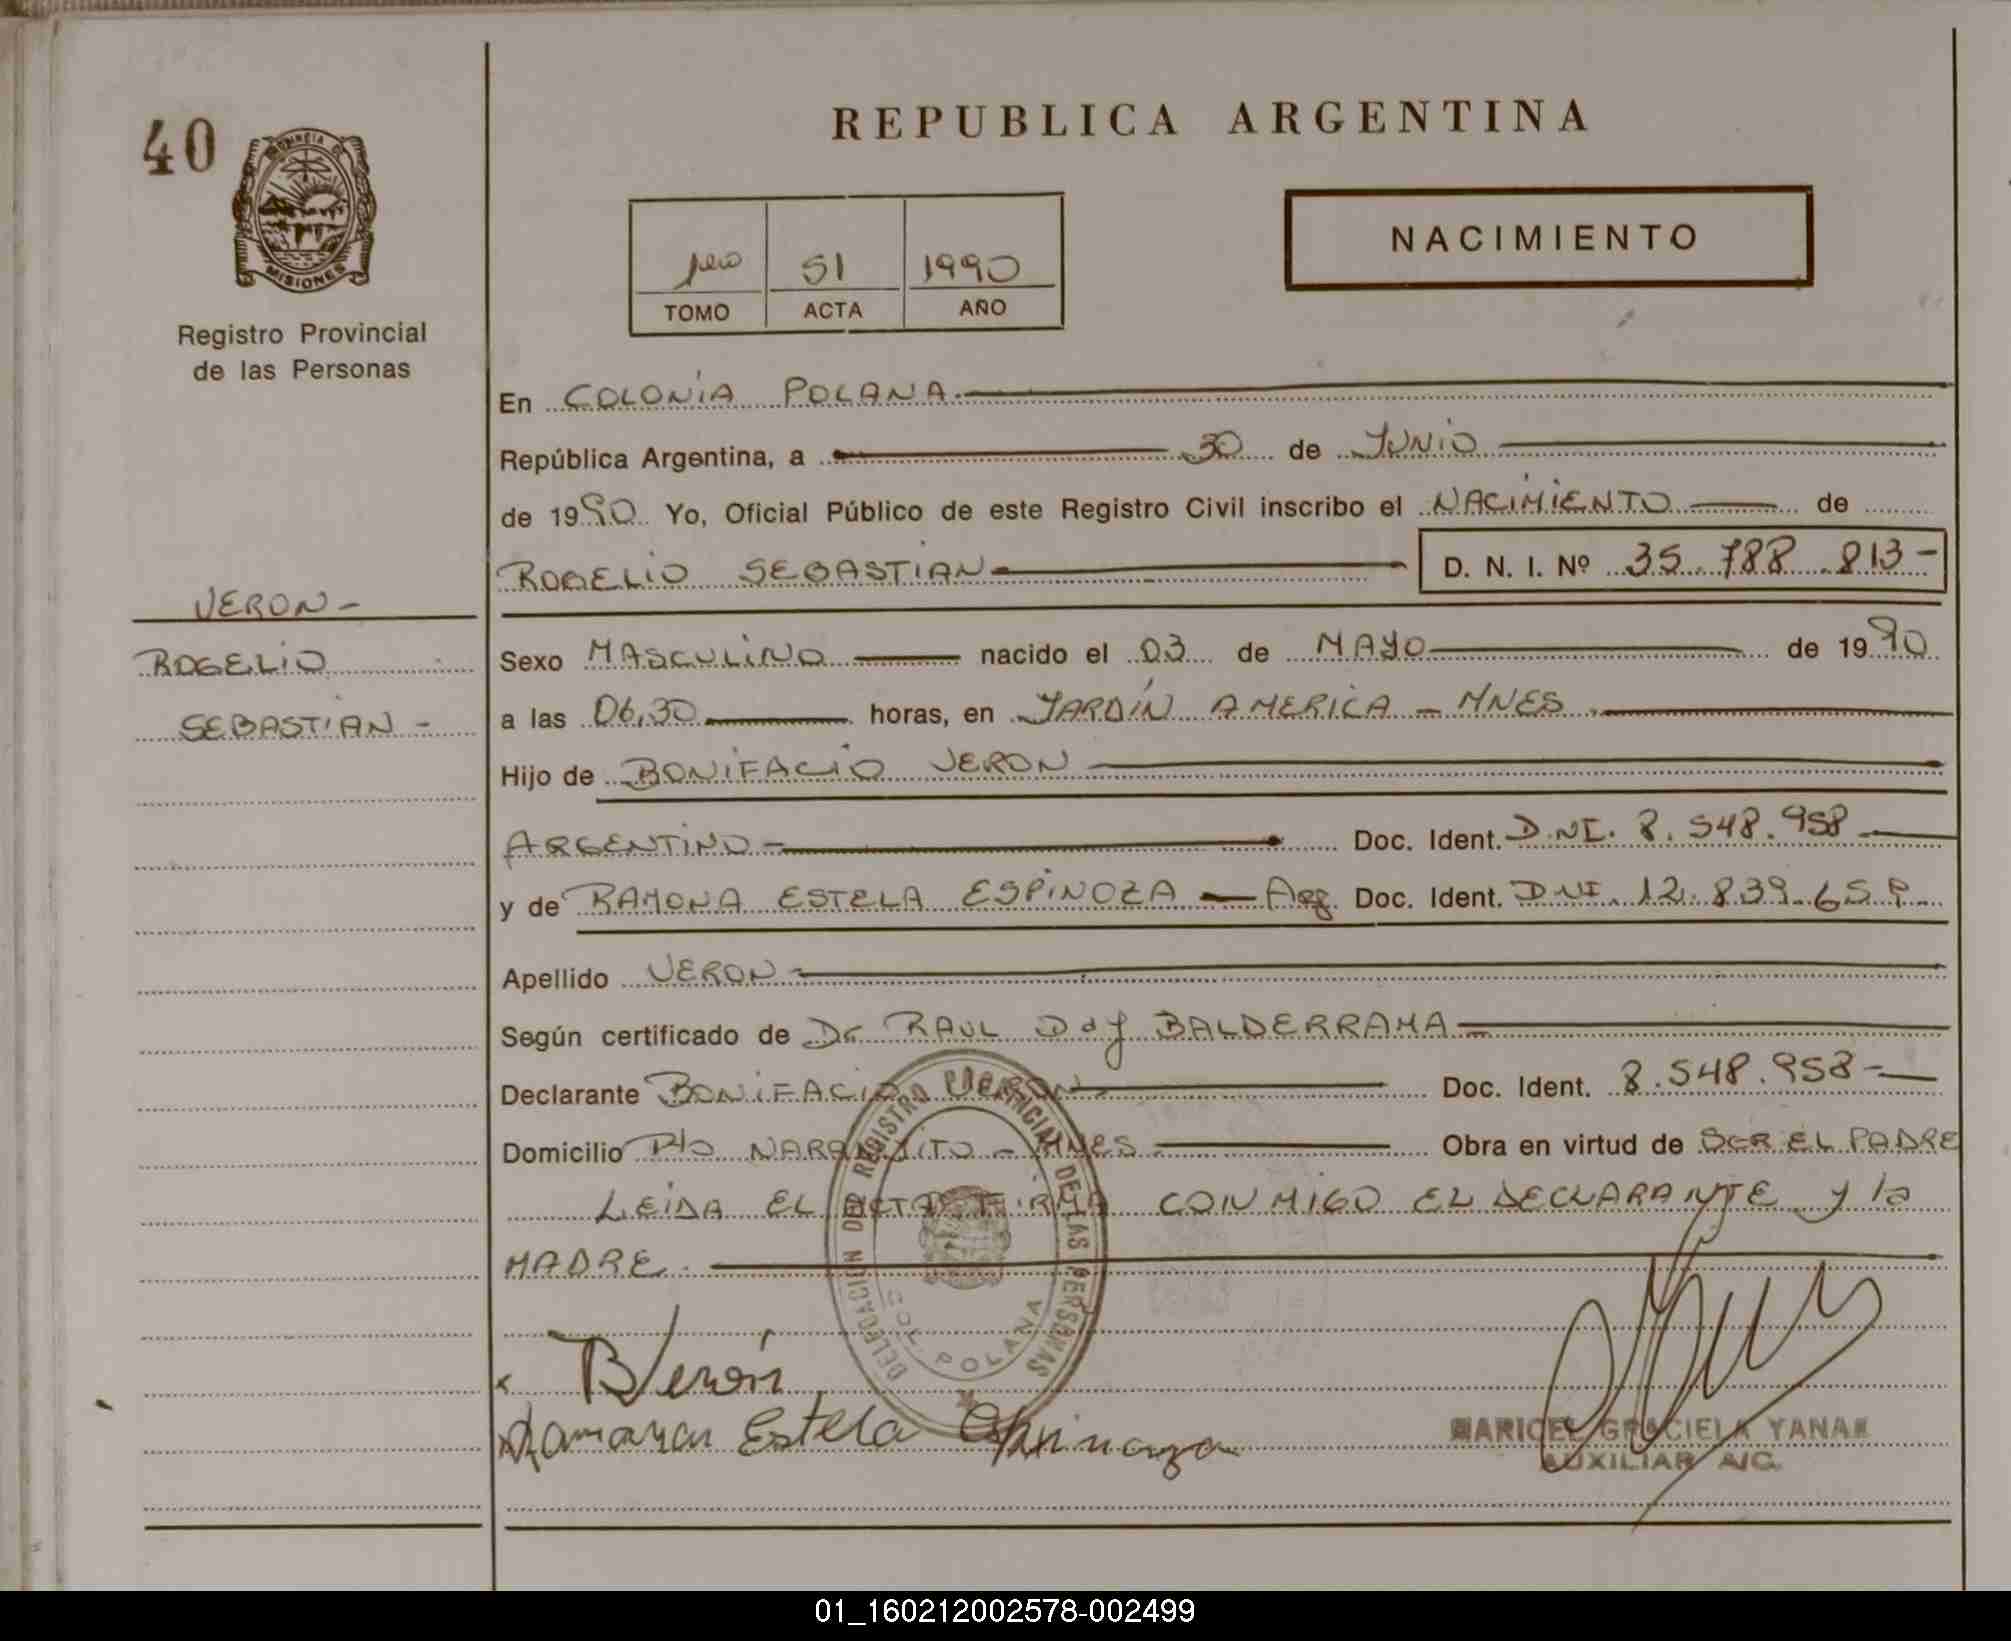 REPUBLICA ARGENTINA
40
PROVINCIA DE
MISIONES
Registro Provincial
de las Personas
1ero 51 1990
TOMO ACTA AÑO
NACIMIENTO
En COLONIA POLANA
República Argentina, a 30 de JUNIO
de 1990 Yo, Oficial Público de este Registro Civil inscribo el NACIMIENTO de
ROGELIO SEBASTIAN D. N. I. Nº 35.788.813-
VERON-
ROGELIO
SEBASTIAN-
Sexo MASCULINO nacido el 03 de MAYO de 1990
a las 06,30 horas, en JARDÍN AMERICA - MNES.
Hijo de BONIFACIO VERON
ARGENTINO- Doc. Ident. D.NI. 8.548.958
y de RAMONA ESTELA ESPINOZA - Arg. Doc. Ident. DNI. 12.839.659
Apellido VERON-
Según certificado de Dr. RAUL BALDERRAMA
Declarante BONIFACIO VERON Doc. Ident. 8.548.958-
Domicilio NARANJITO - MNES Obra en virtud de SER EL PADRE
LEIDA EL ACTA FIRMA CONMIGO EL DECLARANTE y la
MADRE.
DELEGACION DEL REGISTRO PROVINCIAL DE LAS PERSONAS
COL. POLANA
B Verón
Ramona Estela Espinoza
MARICEL GRACIELA YANAK
AUXILIAR A/C.
01_160212002578-002499